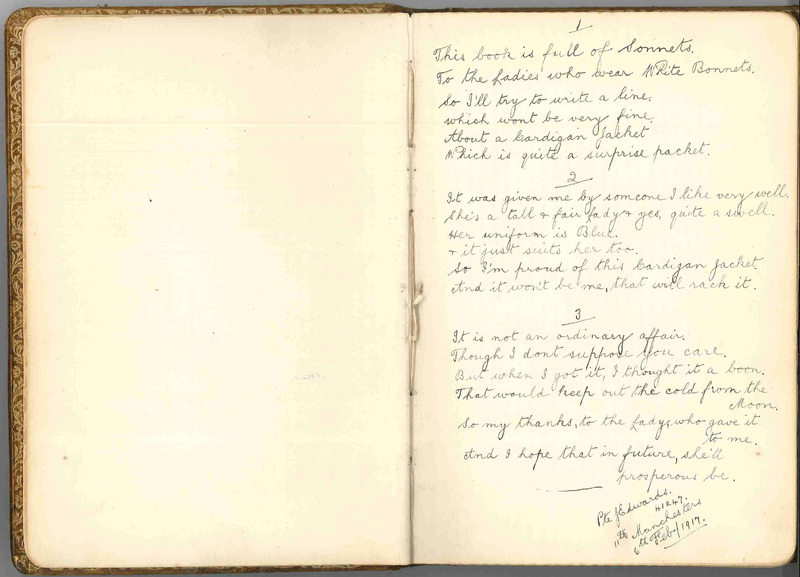 1
This book is full of Sonnets.
To the Ladies who wear White Bonnets.
So I'll try to write a line.
which wont be very fine.
About a Cardigan Jacket
Which is quite a surprise packet.
2
It was given me by someone I like very well.
She's a tall & fair lady & yes, quite a swell.
Her uniform is Blue.
& it just suits her too.
So I'm proud of this Cardigan Jacket
And it won't be me, that will rack it.
3
It is not an ordinary affair.
Though I dont suppose you care.
But when I got it, I thought it a boon.
That would keep out the cold from the
Moon.
So my thanks, to the Lady, who gave it
to me.
And I hope that in future, she'll
prosperous be.
Pte J Edwards.
41247.
11th Manchesters
6th Feb/1917.